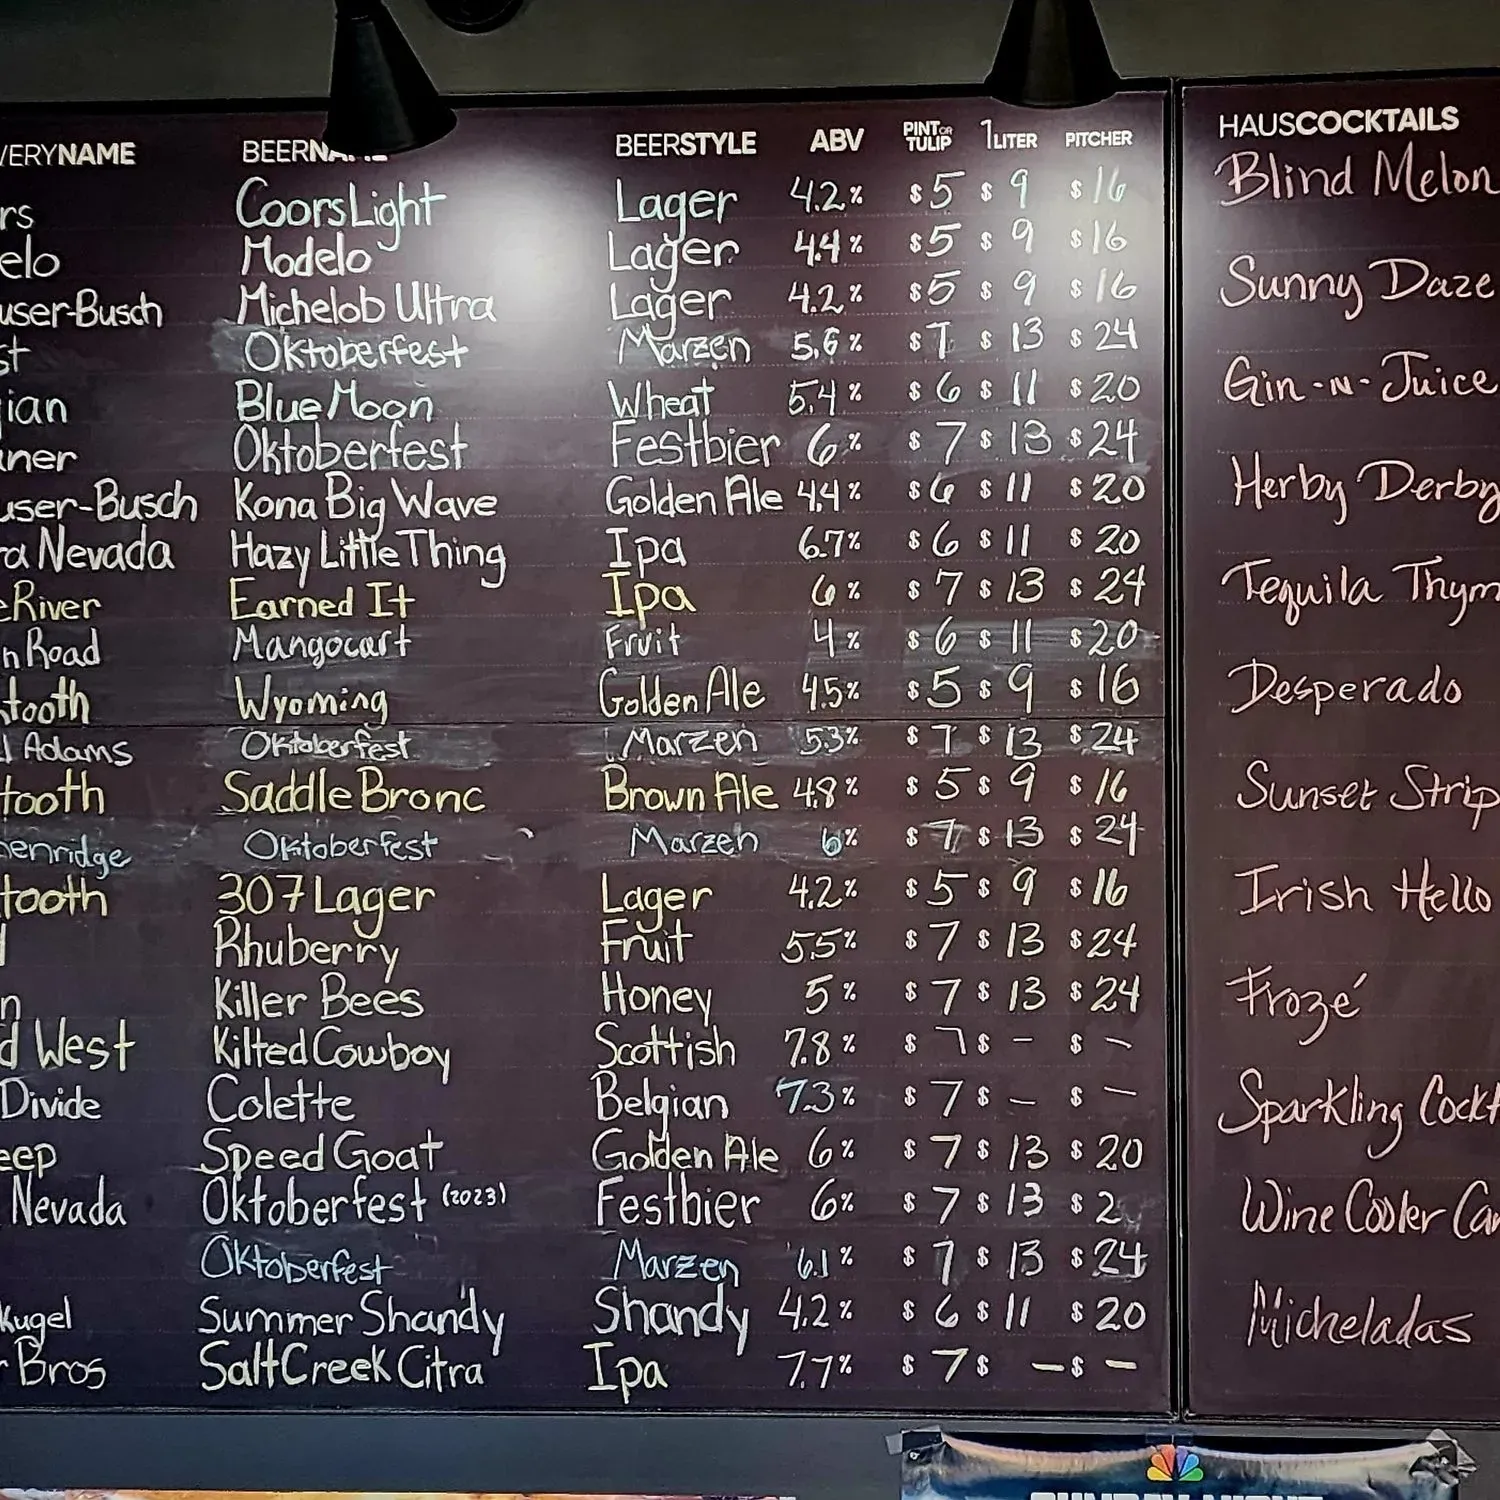 VERYNAME BEERNAME BEERSTYLE ABV PINT OR TULIP 1 LITER PITCHER
rs CoorsLight Lager 4.2% $5 $9 $16
elo Modelo Lager 4.4% $5 $9 $16
user-Busch Michelob Ultra Lager 4.2% $5 $9 $16
st Oktoberfest Marzen 5.6% $7 $13 $24
gian Blue Moon Wheat 5.4% $6 $11 $20
aner Oktoberfest Festbier 6% $7 $13 $24
user-Busch Kona Big Wave Golden Ale 4.4% $6 $11 $20
ra Nevada Hazy Little Thing Ipa 6.7% $6 $11 $20
e River Earned It Ipa 6% $7 $13 $24
n Road Mangocart Fruit 4% $6 $11 $20
tooth Wyoming Golden Ale 4.5% $5 $9 $16
l Adams Oktoberfest Marzen 5.3% $7 $13 $24
tooth Saddle Bronc Brown Ale 4.8% $5 $9 $16
kenridge Oktoberfest Marzen 6% $7 $13 $24
tooth 307 Lager Lager 4.2% $5 $9 $16
Rhuberry Fruit 5.5% $7 $13 $24
n Killer Bees Honey 5% $7 $13 $24
d West Kilted Cowboy Scottish 7.8% $7 $ - $ -
Divide Colette Belgian 7.3% $7 $ - $ -
eep Speed Goat Golden Ale 6% $7 $13 $20
Nevada Oktoberfest (2023) Festbier 6% $7 $13 $2
Oktoberfest Marzen 6.1% $7 $13 $24
kugel Summer Shandy Shandy 4.2% $6 $11 $20
r Bros Salt Creek Citra Ipa 7.7% $7 $ - $ -
HAUSCOCKTAILS
Blind Melon
Sunny Daze
Gin-N-Juice
Herby Derby
Tequila Thym
Desperado
Sunset Strip
Irish Hello
Frozé
Sparkling Cockt
Wine Cooler Can
Micheladas
SUNDAY NIGHT